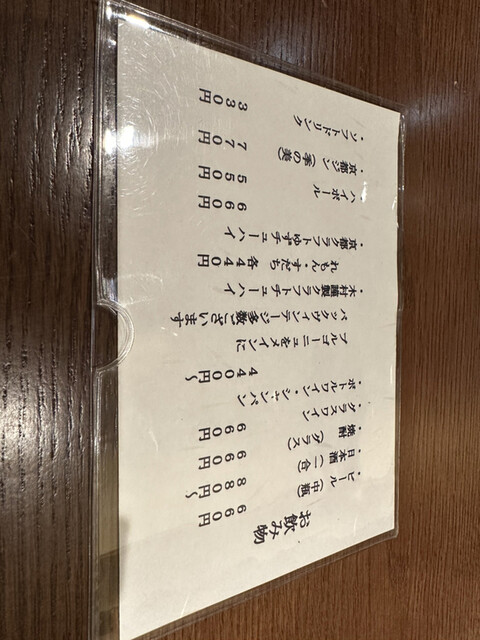 お飲み物
・ビール（中瓶） 660円
・日本酒（一合） 880円〜
・焼酎（グラス） 660円
・グラスワイン 660円
・ボトルワイン・シャンパン 4400円〜
ブルゴーニュをメインに
バックヴィンテージ多数ございます
・木村謹製クラフトチューハイ
れもん・すだち 各440円
・京都クラフトゆずチューハイ 660円
・ハイボール 550円
・京都ジン（季の美） 770円
・ソフトドリンク 330円